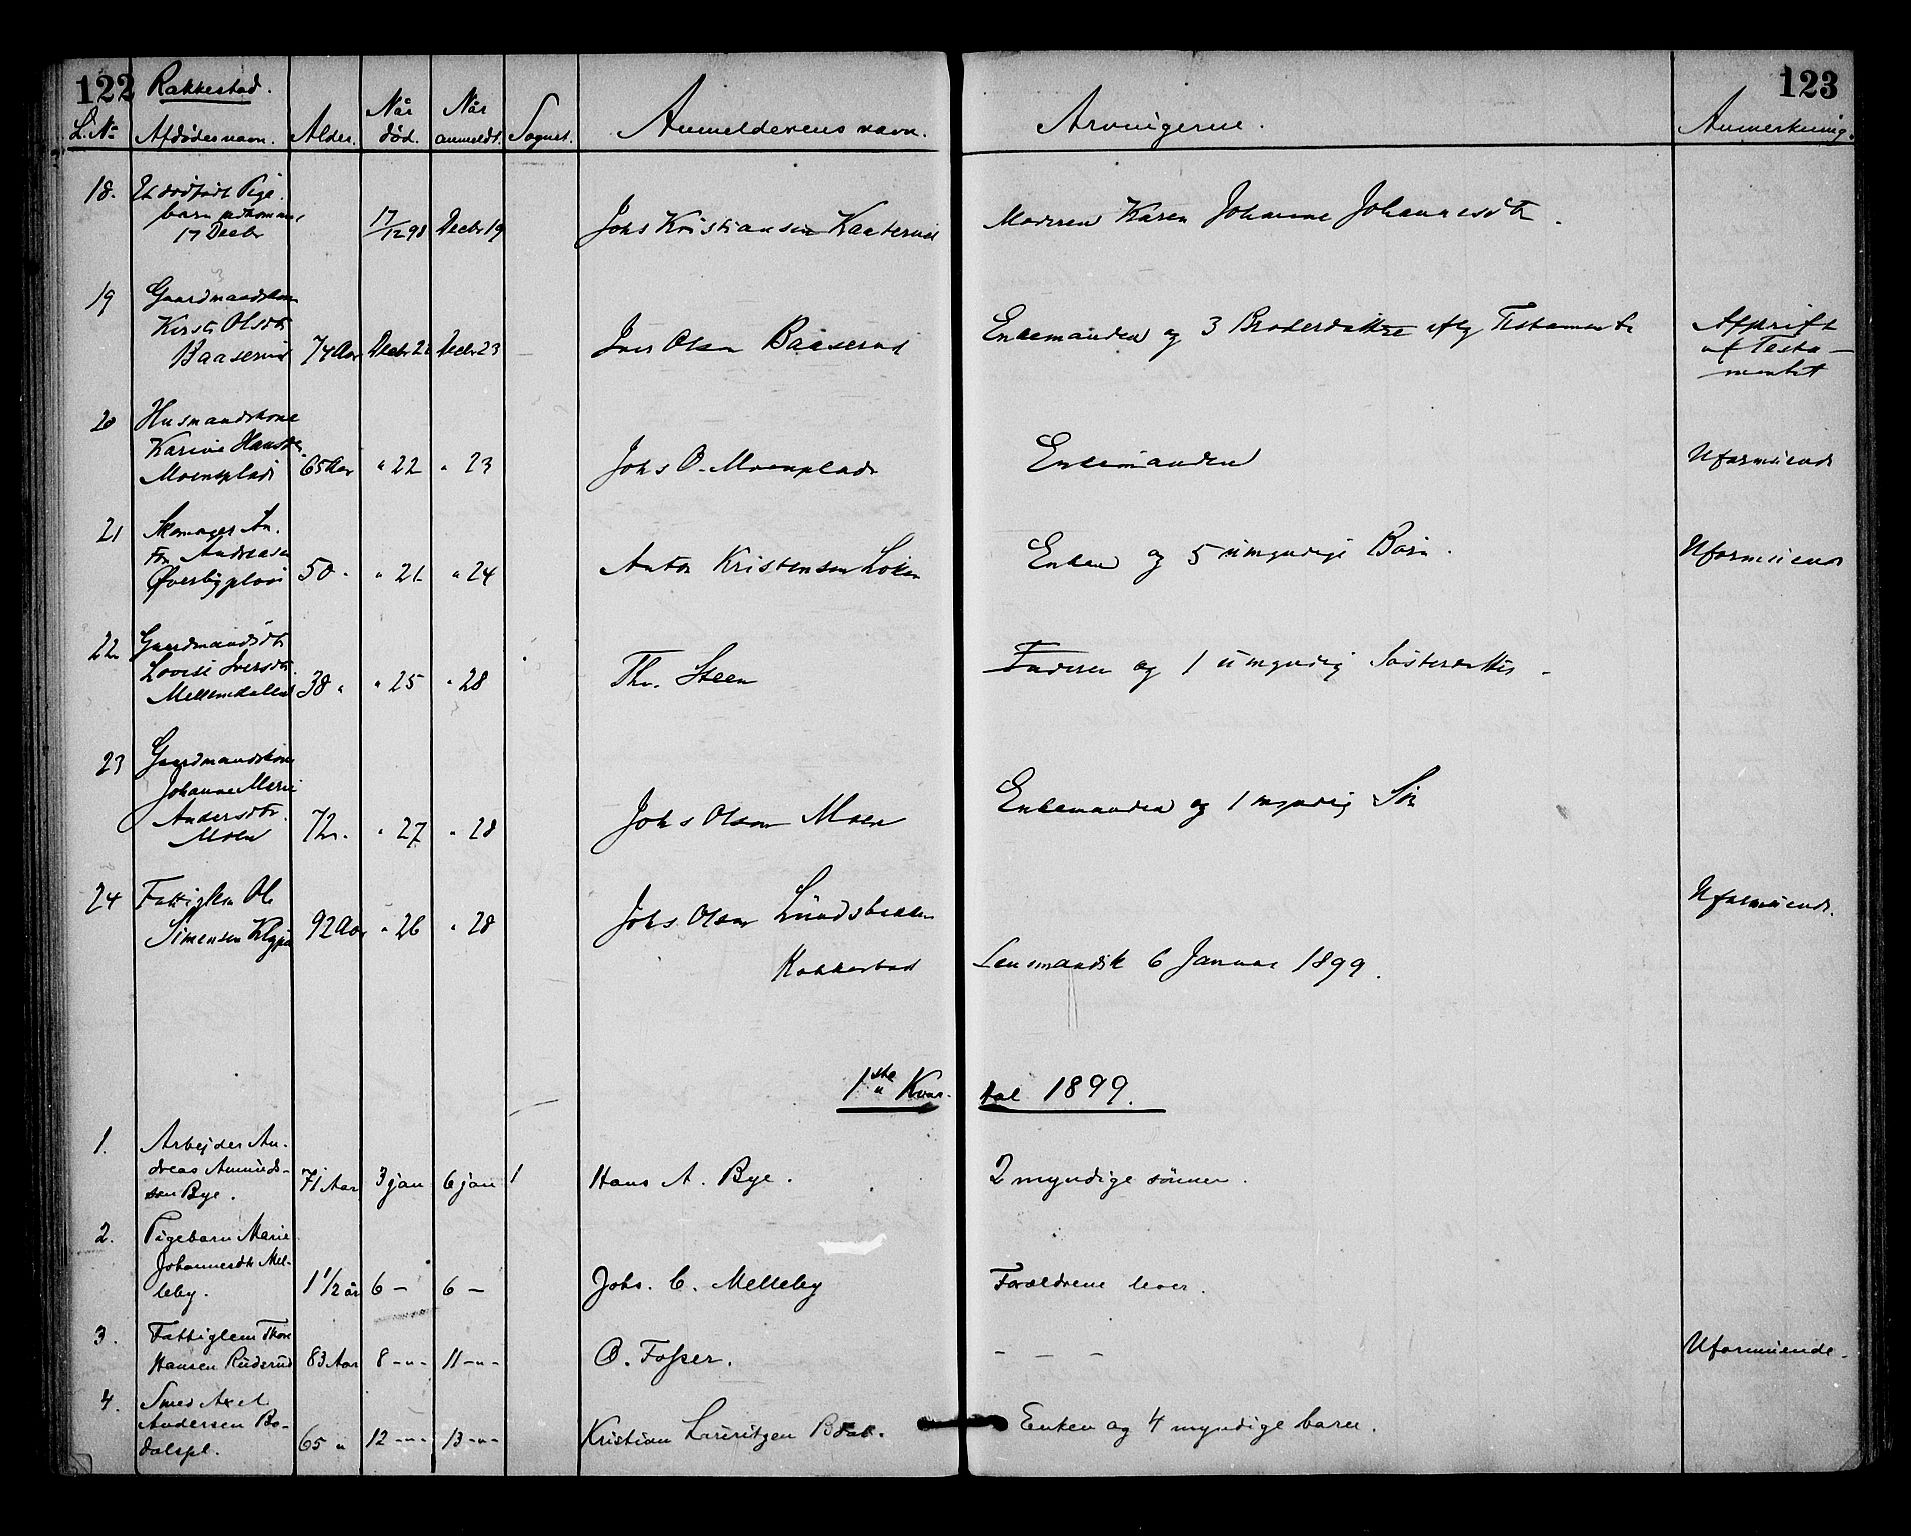 122 Rakkestad. 123
L. No Afdødes navn. Alder. Når død. Når anmeldt. Sognet. Anmelderens navn. Arvingerne. Anmerkning.
18. Et dødfødt Pige-
barn
17 Decbr 17/12 98 Decbr 19 Johs Kristiansen Kaaterud Moderen Karen Johanne Johannesdtr.
19 Gaardmandskone
Kirsti Olsdtr
Baaserud 74 Aar Decbr 21 Decbr 23 Iver Olsen Baaserud Enkemanden og 3 Broderdøttre iflg Testamente Afskrift
af Testa-
mentet
20 Husmandskone
Karine Hansdtr.
Moensplads 65 Aar " 22 " 23 Johs O. Moensplads Enkemanden Uformuende
21 Skomager An-
ton Andreasen
Øverbyplads 50 " " 21 " 24 Anton Kristensen Löken Enken og 5 umyndige Børn. Uformuende
22 Gaardmandsdtr
Lovise Iversdtr
Mellemdalen 38 " " 25 " 28 Th. Steen Faderen og 1 umyndig Søsterdatter.
23 Gaardmandskone
Johanne Marie
Andersdtr.
Moen 72 " " 27 " 28 Johs Olsen Moen Enkemanden og 1 myndig Søn
24 Fattiglem Ole
Simensen 92 Aar " 26 " 28 Johs Olsen Lundsbakken Uformuende.
Rakkestad Lensmandsk 6 Januar 1899.
1ste Kvar- tal 1899.
1. Arbejder An-
dreas Amunds-
sen Bye. 71 Aar 3 jan 6 jan 1 Hans A. Bye. 2 myndige sønner.
2. Pigebarn Marie
Johannesdtr Mel-
leby. 1 1/2 år 6 — 6 — Johs. C. Melleby Forældrene lever.
3. Fattiglem Thor
Hansen Ruderud 83 Aar 8 -"- 11 -"- O. Fosser. - - - Uformuende.
4. Smed Axel
Andersen Bø-
dalspl. 65 " 12 -"- 13 -"- Kristian Lauritzen Bødal. Enken og 4 myndige barn.